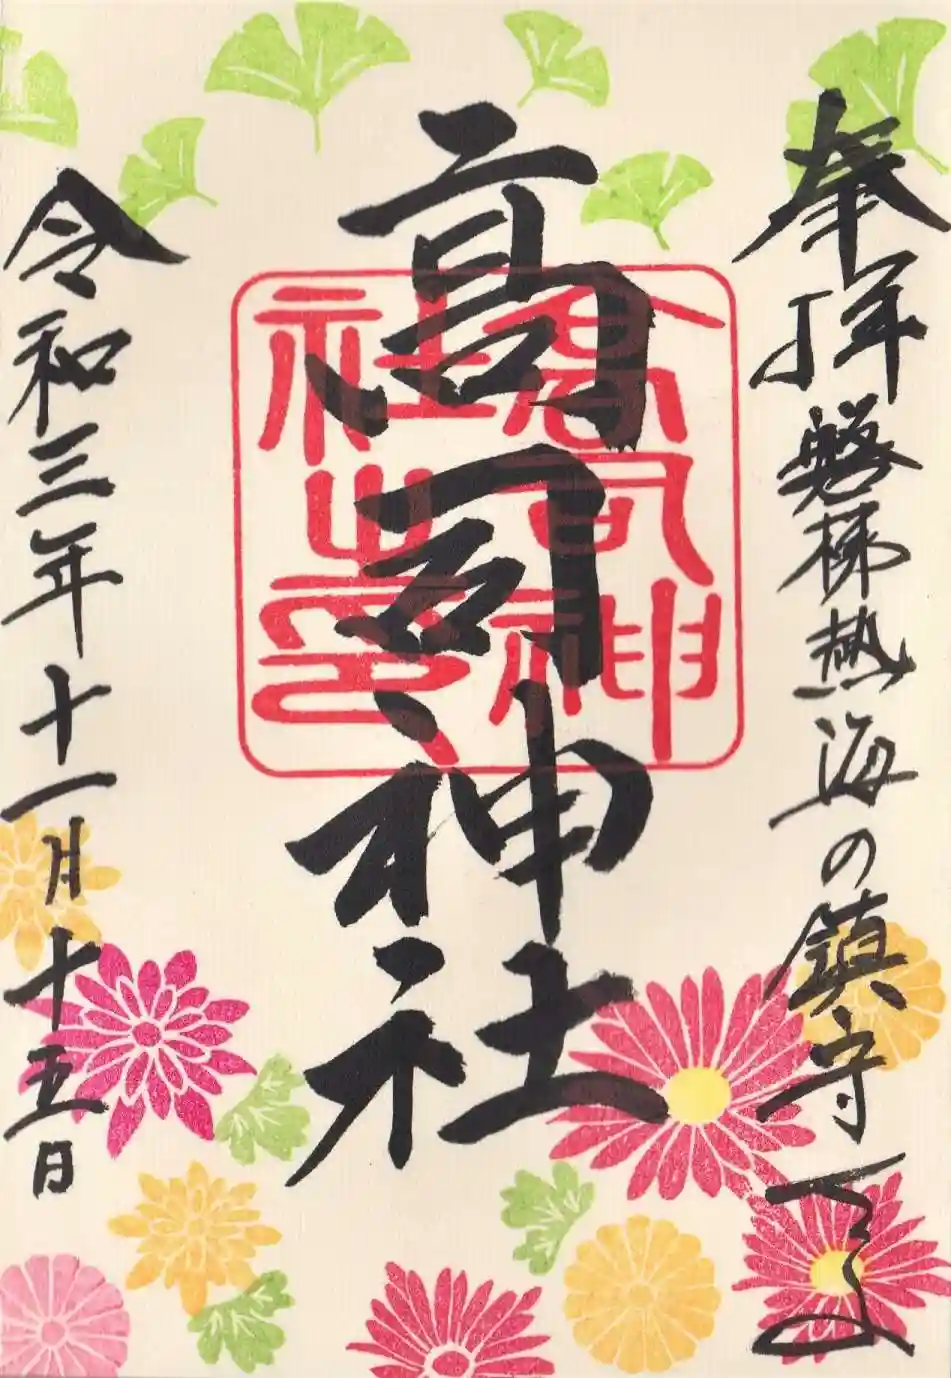 奉拝 磐梯熱海の鎮守
高司神社
高司神社之印
令和三年十一月十五日